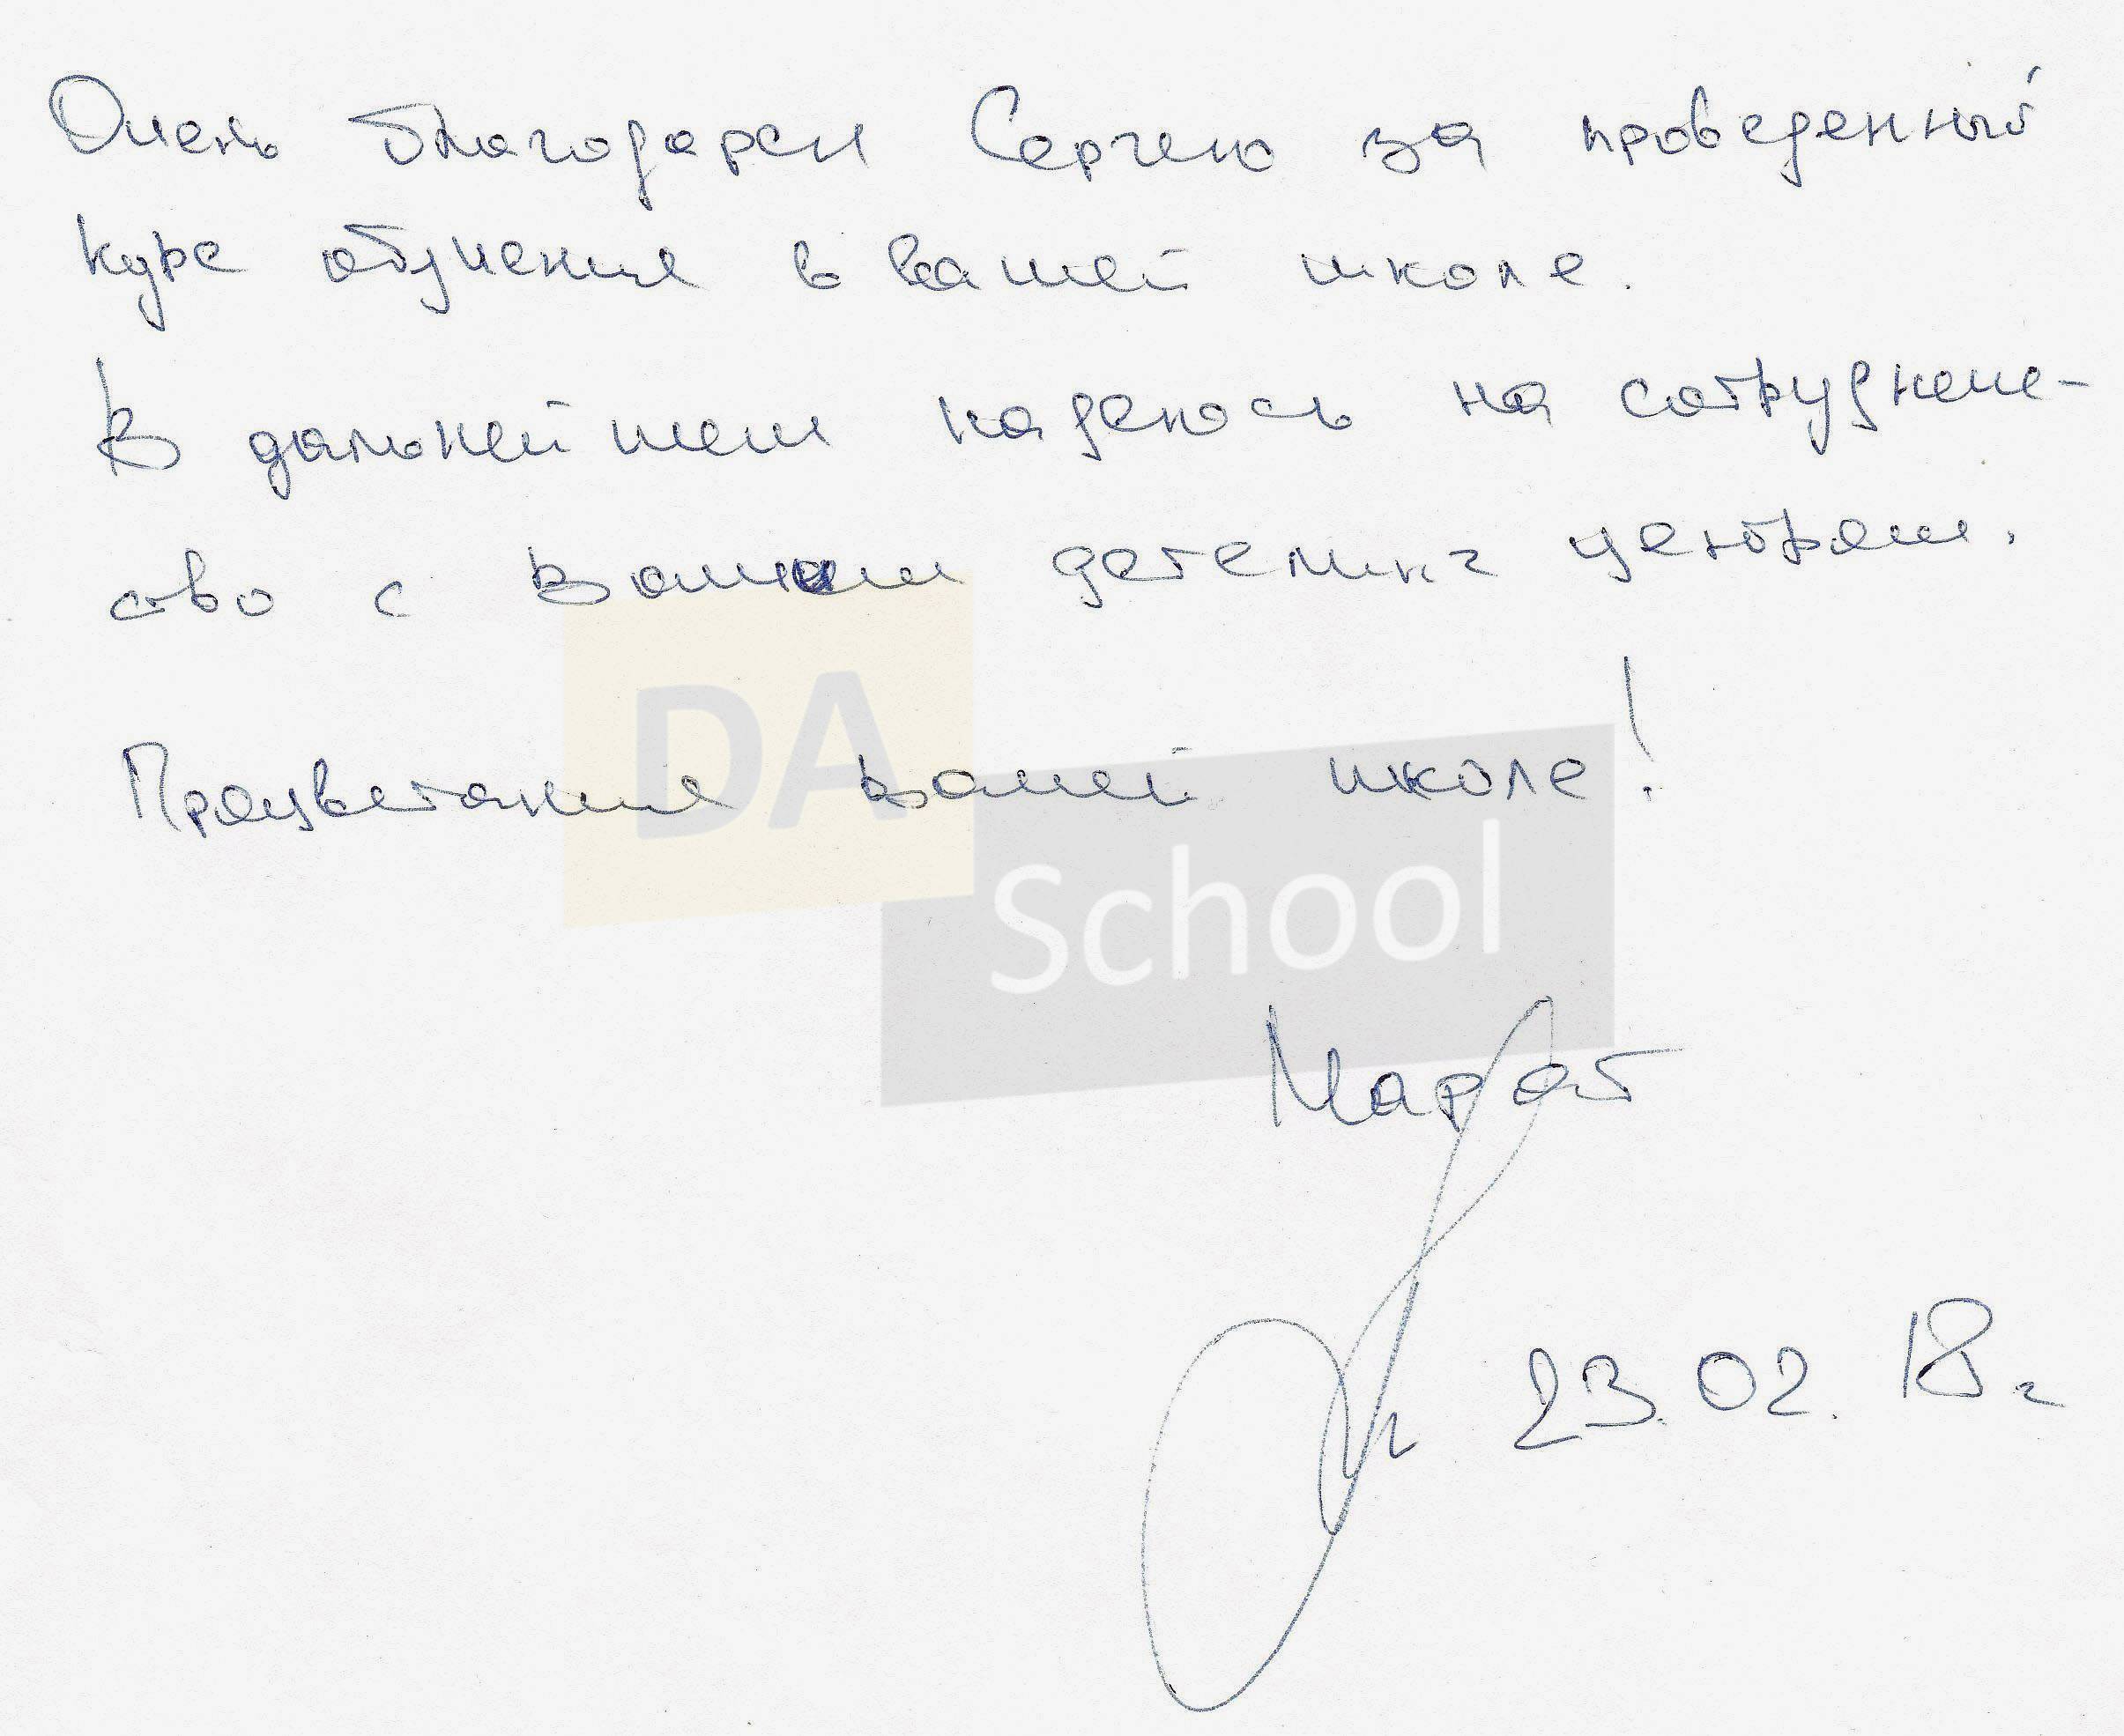 Очень благодарен Сергею за проведенный
курс обучения в вашей школе.
В дальнейшем надеюсь на сотрудниче-
ство с вашим центром.
Процветания вашей школе!
DA
School
Марат
23.02.18г